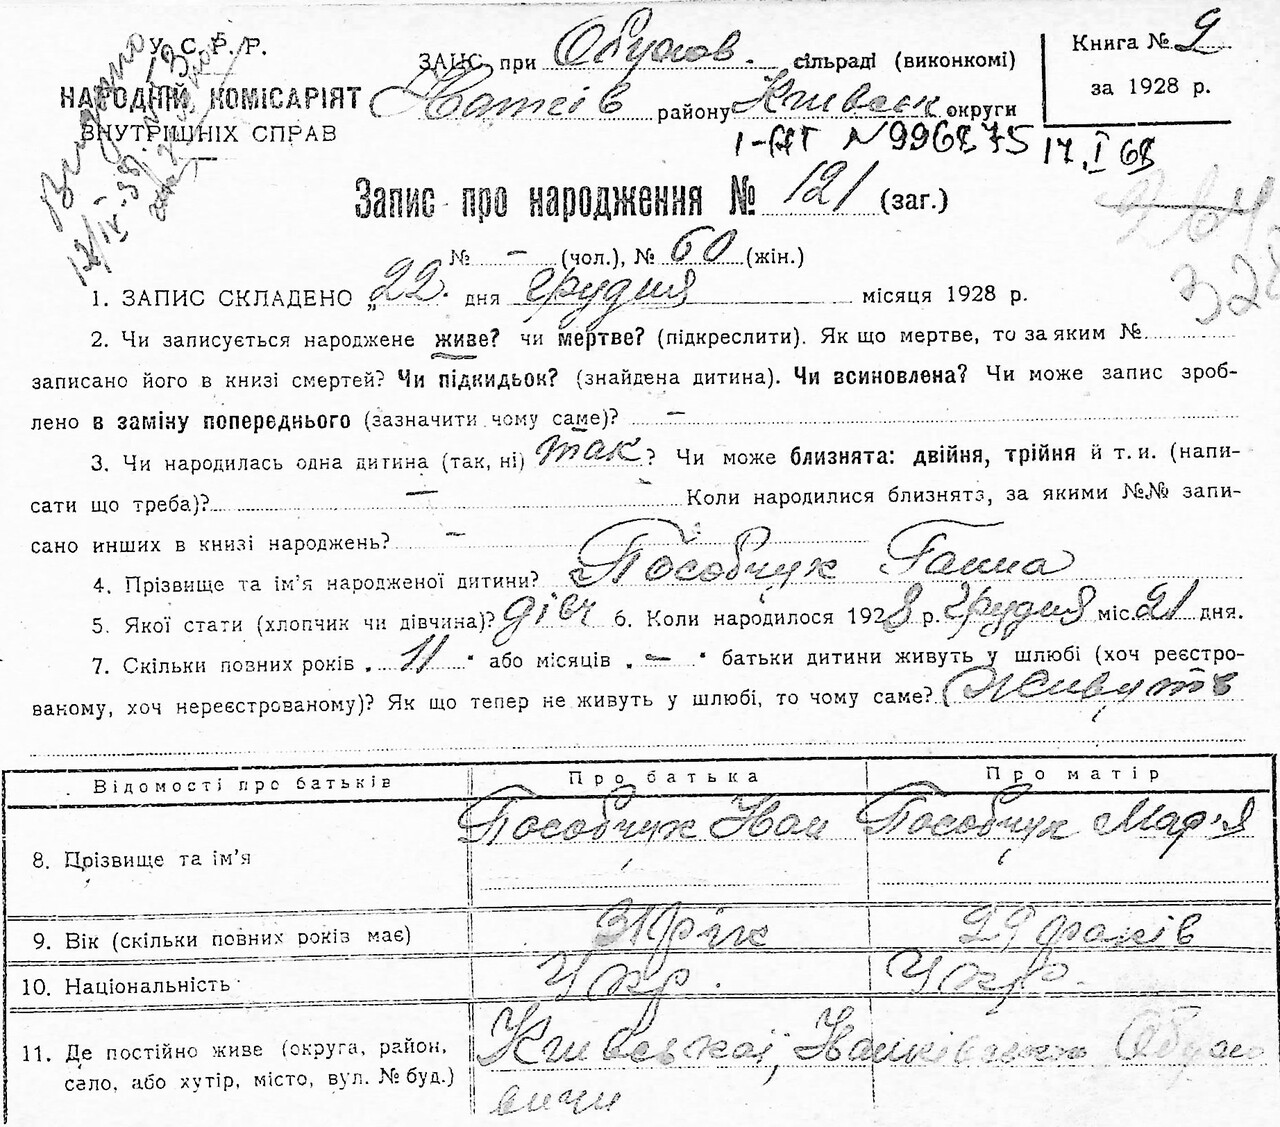 У. С. Р. Р.
НАРОДНІЙ КОМІСАРІЯТ
ВНУТРІШНІХ СПРАВ
Видано
ЗАГС при Обухов. сільраді (виконкомі)
району Київськ округи
Книга № 9
за 1928 р.
І-БЛ №996875 17.I 68
Запис про народження № 121 (заг.)
№ – (чол.), № 60 (жін.)
264
328
1. ЗАПИС СКЛАДЕНО „22. дня грудня місяця 1928 р.
2. Чи записується народжене живе? чи мертве? (підкреслити). Як що мертве, то за яким №
записано його в книзі смертей? Чи підкидьок? (знайдена дитина). Чи всиновлена? Чи може запис зроб-
лено в заміну попереднього (зазначити чому саме)? –
3. Чи народилась одна дитина (так, ні) так? Чи може близнята: двійня, трійня й т. и. (напи-
сати що треба)? – Коли народилися близнята, за якими №№ запи-
сано инших в книзі народжень? –
4. Прізвище та ім'я народженої дитини? Пособчук Ганна
5. Якої стати (хлопчик чи дівчина)? дівч 6. Коли народилося 1928 р. грудня міс. 21 дня.
7. Скільки повних років „11" або місяців „–" батьки дитини живуть у шлюбі (хоч реєстро-
ваному, хоч нереєстрованому)? Як що тепер не живуть у шлюбі, то чому саме? Живуть
Відомості про батьків Про батька Про матір
8. Прізвище та ім'я Пособчук Іван Пособчук Мар'я
9. Вік (скільки повних років має) 31 рік 29 років
10. Національність Укр. Укр.
11. Де постійно живе (округа, район, Київської, Іванківськ Обухо
село, або хутір, місто, вул. № буд.) вичи